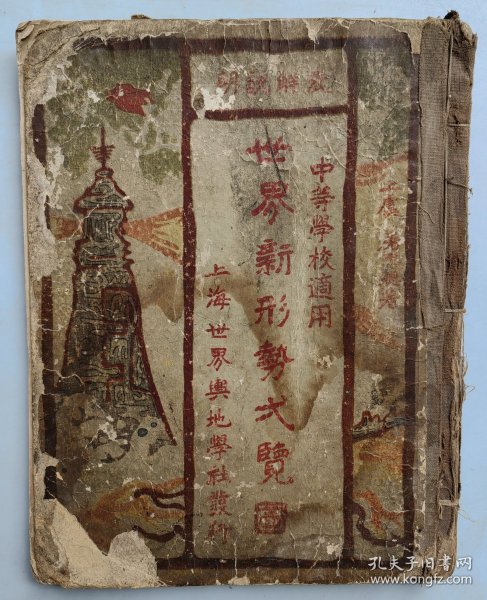 表解說明
中等學校適用
世界新形勢弌覽圖
上海世界輿地學社發行
孔夫子旧书网
www.kongfz.com